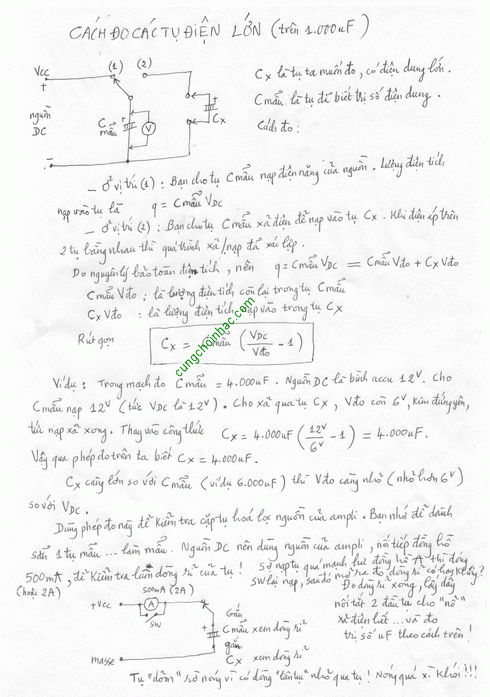 CÁCH ĐO CÁC TỤ ĐIỆN LỚN (trên 1.000uF)
Vcc (1) (2)
+
nguồn DC
C mẫu
V
Cx
Cx là tụ ta muốn đo, có điện dung lớn.
C mẫu là tụ đã biết trị số điện dung.
Cách đo:
- Ở vị trí (1) : Bạn cho tụ C mẫu nạp điện năng của nguồn. Lượng điện tích
nạp vào tụ là q = Cmẫu VDC
- Ở vị trí (2) : Bạn cho tụ C mẫu xả điện để nạp vào tụ Cx. Khi điện áp trên
2 tụ bằng nhau thì quá trình xả/nạp đã xác lập.
Do nguyên lý bảo toàn điện tích, nên q = Cmẫu VDC = Cmẫu Vđo + Cx Vđo
Cmẫu Vđo : là lượng điện tích còn lại trong tụ Cmẫu
Cx Vđo : là lượng điện tích nạp vào trong tụ Cx
Rút gọn Cx = Cmẫu (VDC/Vđo - 1)
cungchoinhac.com
Ví dụ : Trong mạch đo Cmẫu = 4.000uF. Nguồn DC là bình accu 12V. Cho
Cmẫu nạp 12V (tức VDC là 12V). Cho xả qua tụ Cx, Vđo còn 6V, kim đứng yên,
tức nạp xả xong. Thay vào công thức Cx = 4.000uF (12V/6V - 1) = 4.000uF.
Vậy qua phép đo trên ta biết Cx = 4.000uF.
Cx càng lớn so với Cmẫu (ví dụ 6.000uF) thì Vđo càng nhỏ (nhỏ hơn 6V)
so với VDC.
Dùng phép đo này để kiểm tra cặp tụ hoá lọc nguồn của ampli. Bạn nhớ để dành
sẵn 1 tụ mẫu ... làm mẫu. Nguồn DC nên dùng nguồn của ampli, nối tiếp đồng hồ
500mA, để kiểm tra luôn dòng rỉ của tụ ! sợ nạp tụ quá mạnh hư đồng hồ A thì đóng
(hoặc 2A) sw lại nạp, sau đó mở ra đo dòng rỉ có hay không?
500mA (2A)
+Vcc A
SW
masse
Gắn
C mẫu xem dòng rỉ
gắn
Cx xem dòng rỉ
Đo dòng rỉ xong, lấy dây
nối tắt 2 đầu tụ cho "nổ"
xì điện hết ... và đo
trị số uF theo cách trên !
Tụ "dỏm" sờ nóng vì có dòng "lẩn" nhỏ qua tụ ! Nóng quá xì khói !!!